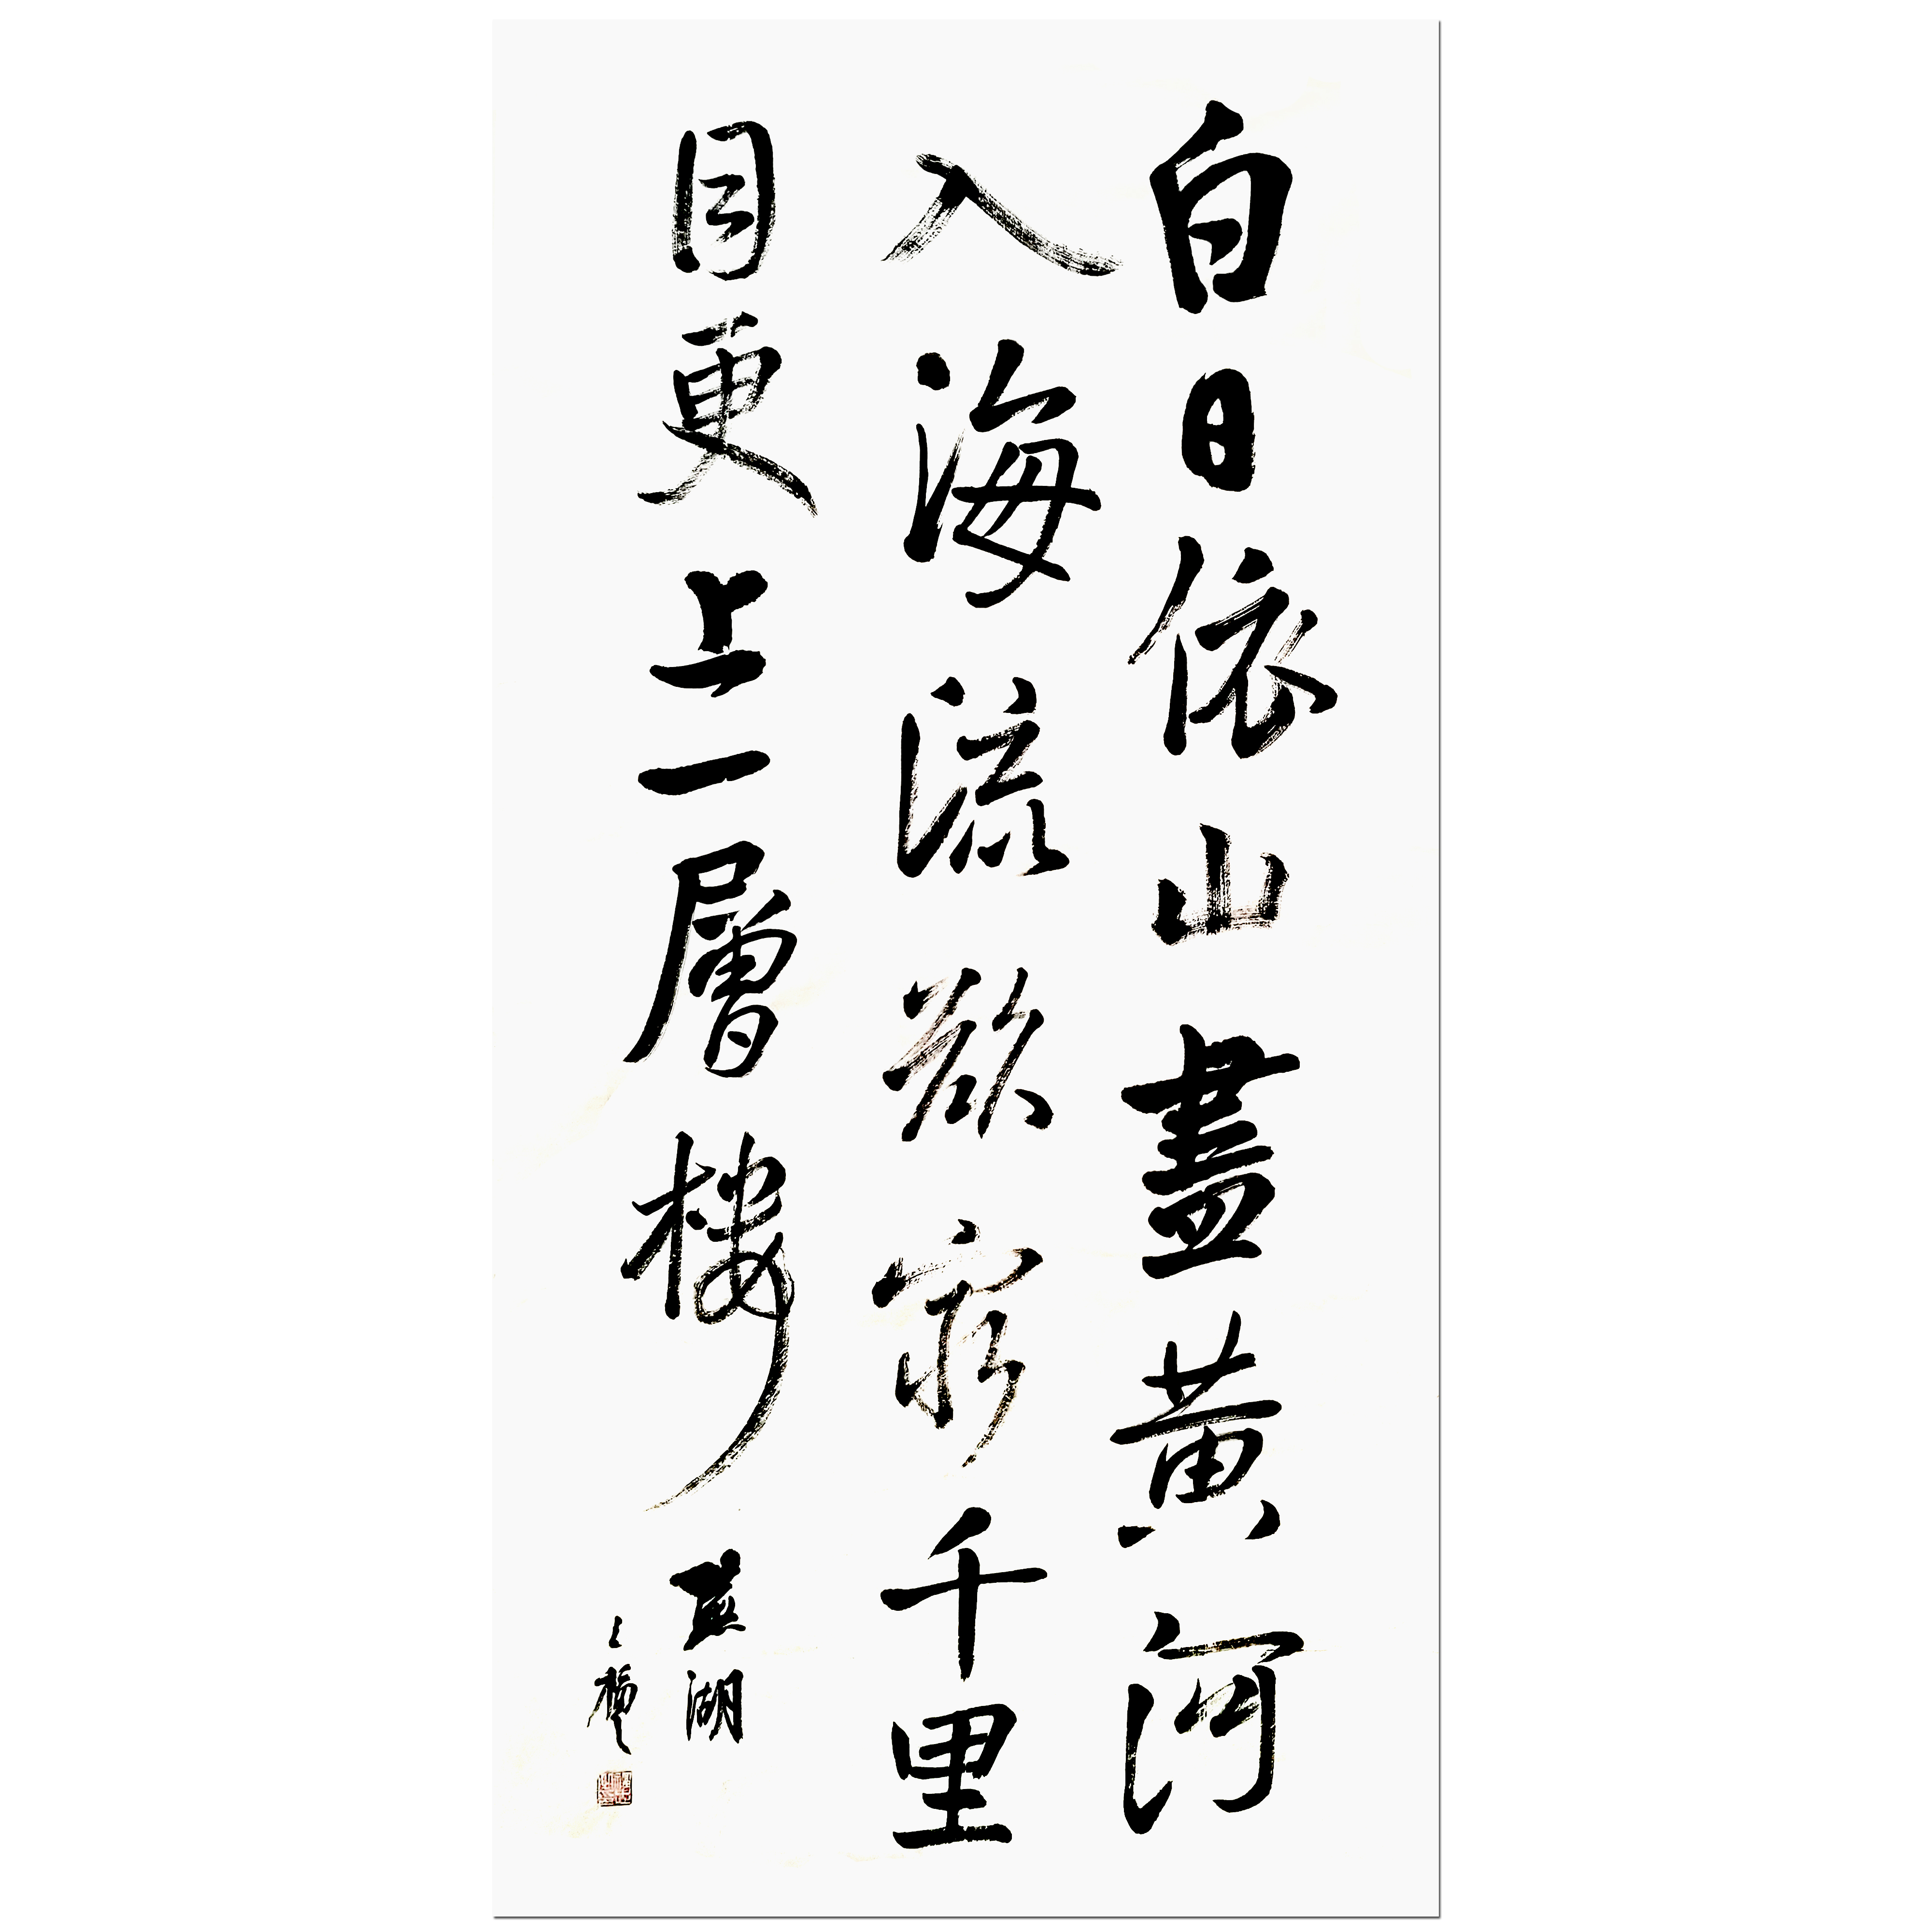 白日依山盡黃河
入海流欲窮千里
目更上一層樓
湖